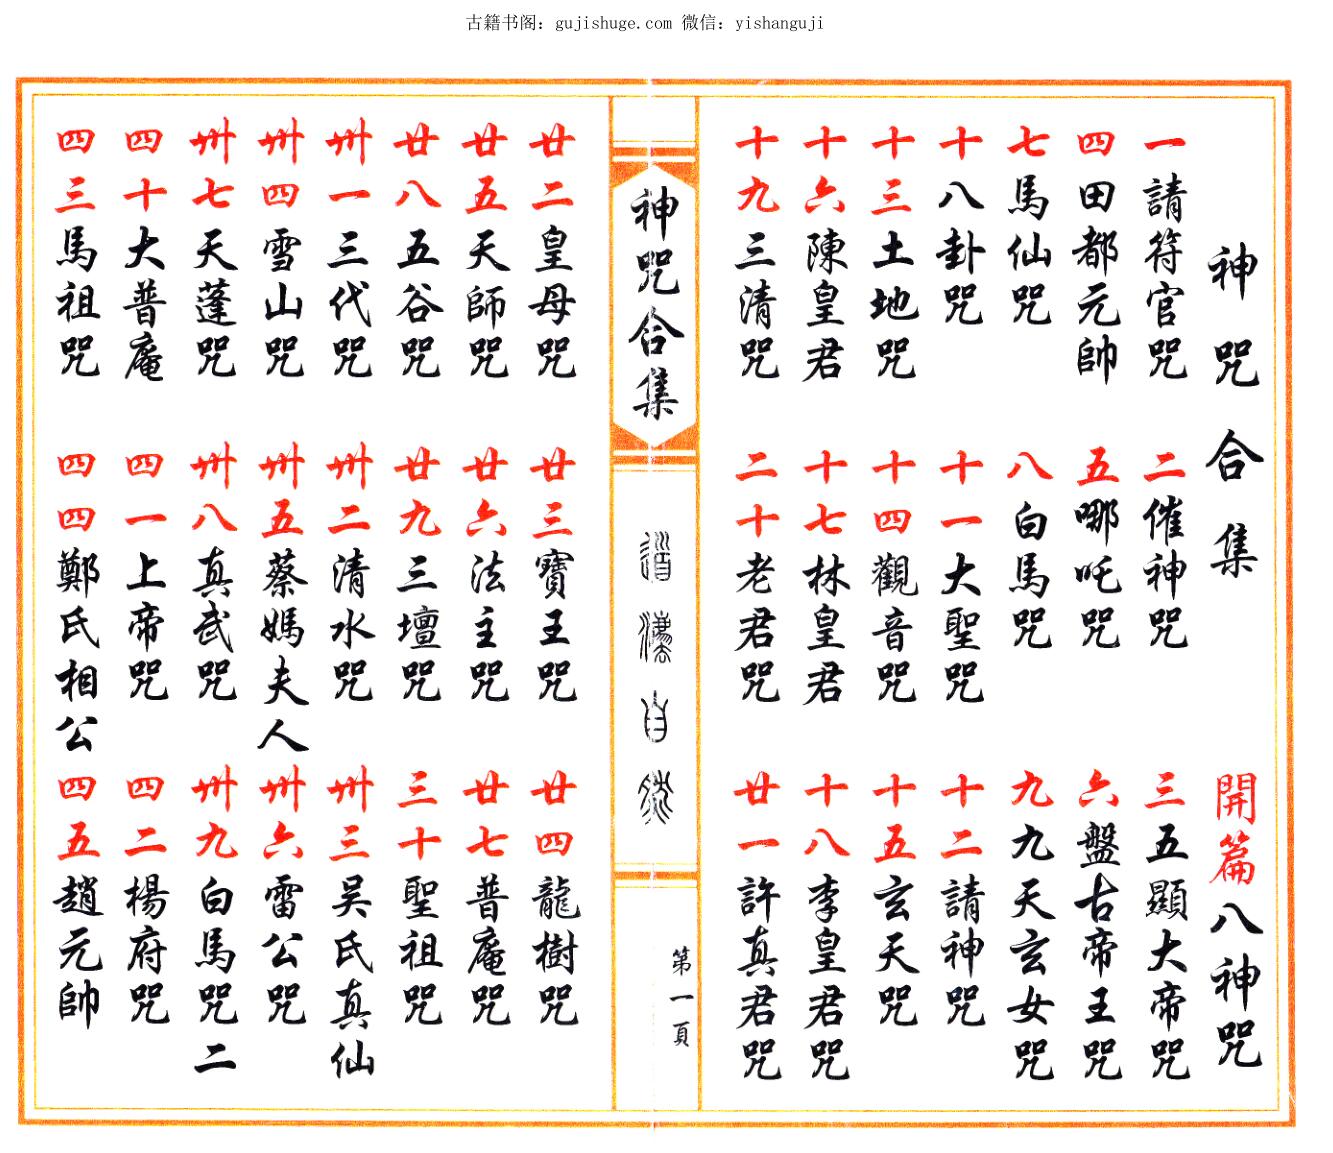 古籍书阁：gujishuge.com 微信：yishanguji
神咒合集 開篇八神咒
一請符官咒 二催神咒 三五顯大帝咒
四田都元帥 五哪吒咒 六盤古帝王咒
七馬仙咒 八白馬咒 九九天玄女咒
十八卦咒 十一大聖咒 十二請神咒
十三土地咒 十四觀音咒 十五玄天咒
十六陳皇君 十七林皇君 十八李皇君咒
十九三清咒 二十老君咒 廿一許真君咒
神咒合集
道漢自然
第一頁
廿二皇母咒 廿三寶王咒 廿四龍樹咒
廿五天師咒 廿六法主咒 廿七普庵咒
廿八五谷咒 廿九三壇咒 三十聖祖咒
卅一三代咒 卅二清水咒 卅三吴氏真仙
卅四雪山咒 卅五蔡媽夫人 卅六雷公咒
卅七天蓬咒 卅八真武咒 卅九白馬咒二
四十大普庵 四一上帝咒 四二楊府咒
四三馬祖咒 四四鄭氏相公 四五趙元帥